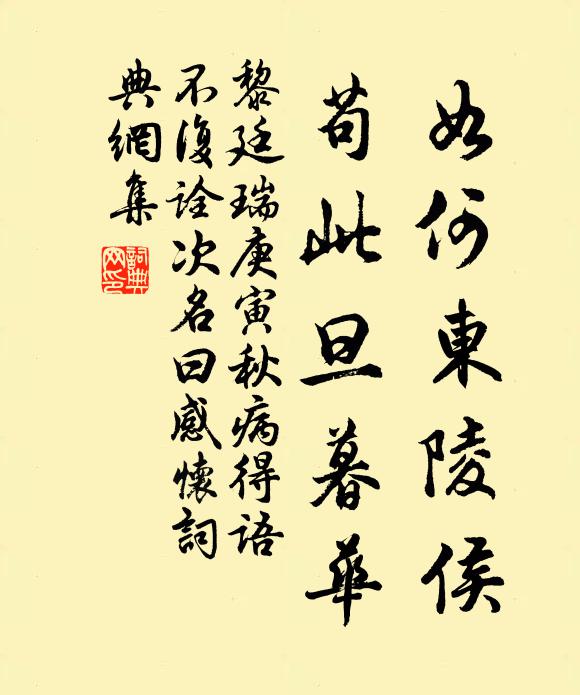 如何東陵侯
苟此旦暮華
黎廷瑞庚寅秋病得語
不復詮次名曰感懷詞
典網集
詞典
网印